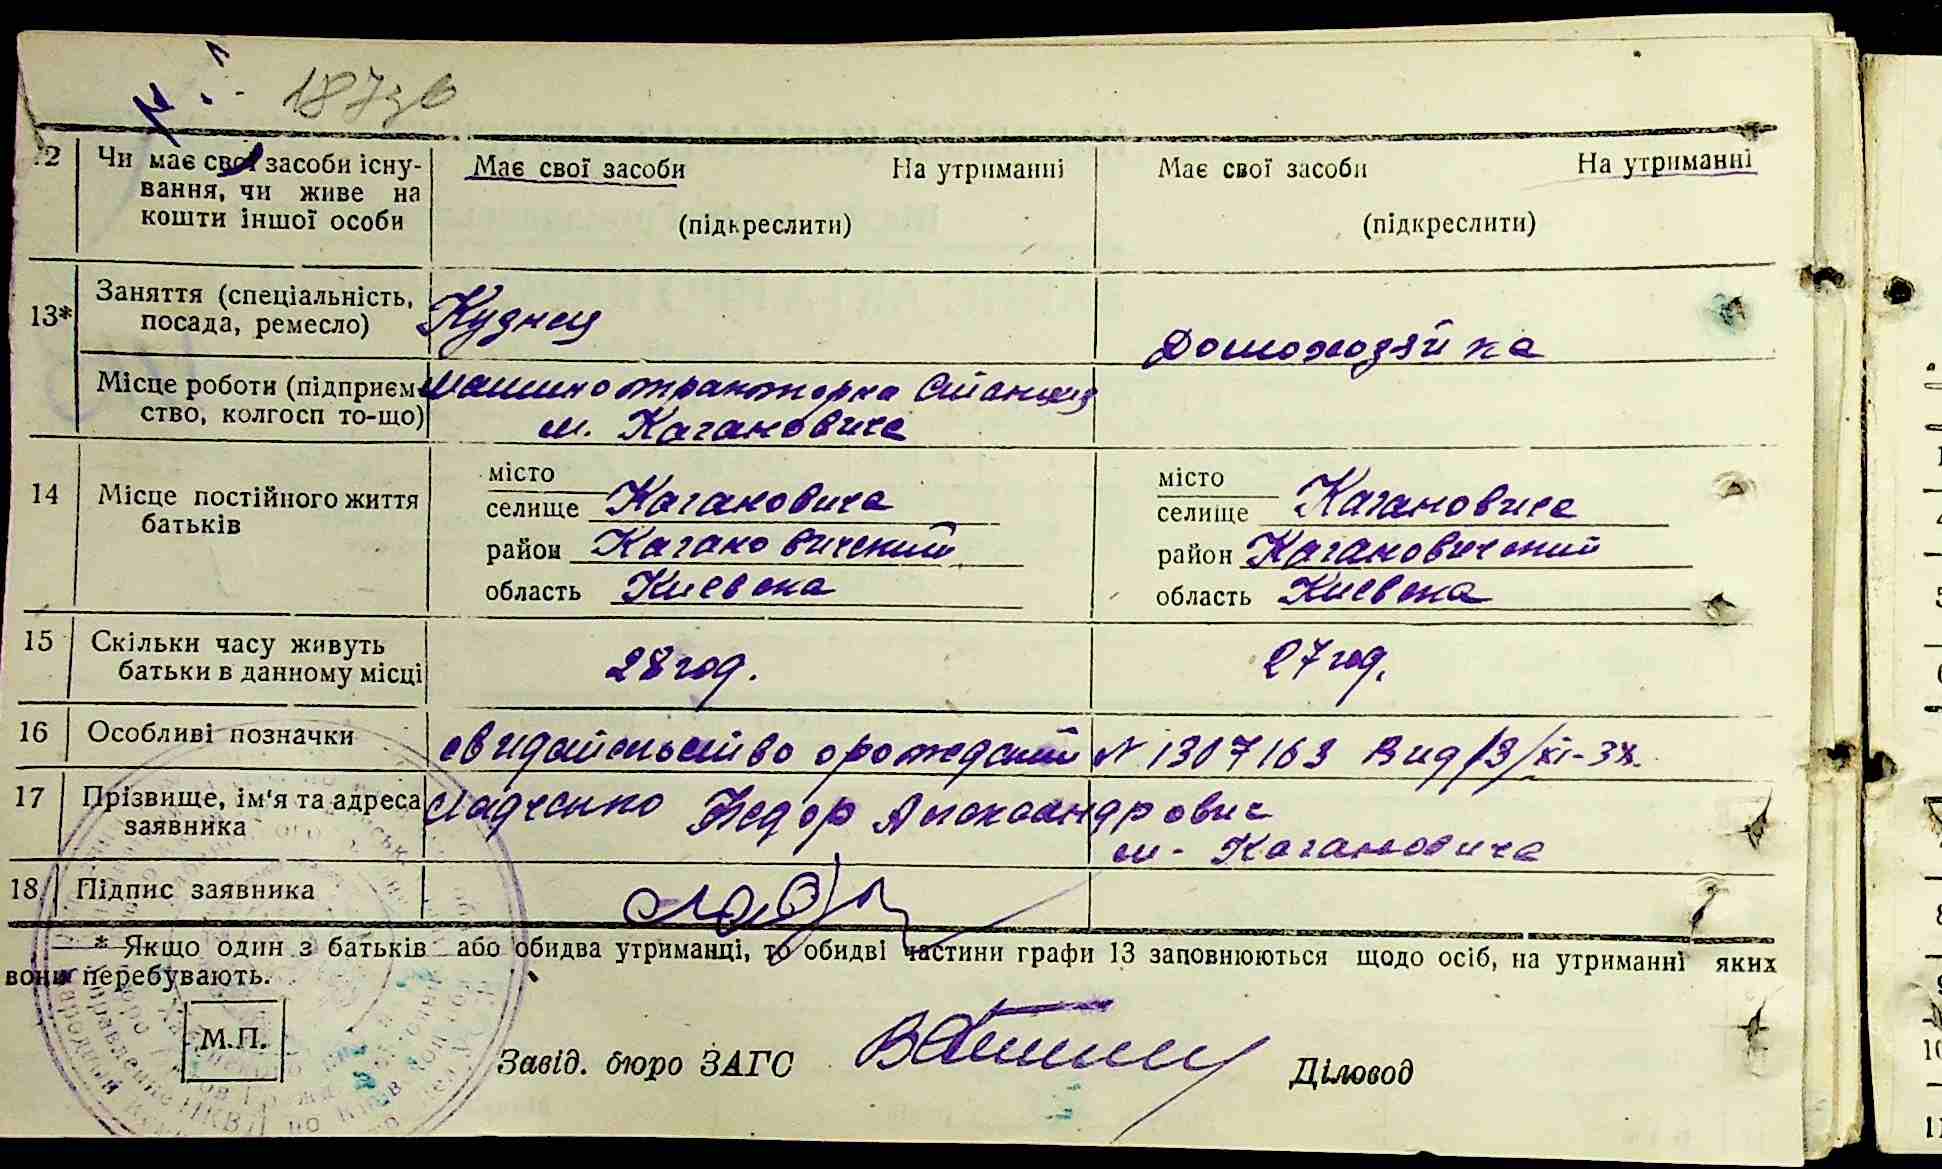 187зв
12 Чи має свої засоби існу- Має свої засоби На утриманні Має свої засоби На утриманні
вання, чи живе на
кошти іншої особи (підкреслити) (підкреслити)
13* Заняття (спеціальність, Кузнец
посада, ремесло) Домохозяйка
Місце роботи (підприєм- Машинотракторна Станция
ство, колгосп то-що) м. Кагановича
14 Місце постійного життя місто місто
батьків селище Кагановича селище Кагановича
район Кагановичский район Кагановичский
область Киевска область Киевска
15 Скільки часу живуть 28 год. 27 год.
батьки в данному місці
16 Особливі позначки свидайельсйво о рождении № 1307163 Выд 13/XI-38.
17 Прізвище, ім'я та адреса Ладченко Федор Александрович
заявника м. Кагановича
18 Підпис заявника
* Якщо один з батьків або обидва утриманці, то обидві частини графи 13 заповнюються щодо осіб, на утриманні яких
вони перебувають.
М.П.
Завід. бюро ЗАГС Діловод